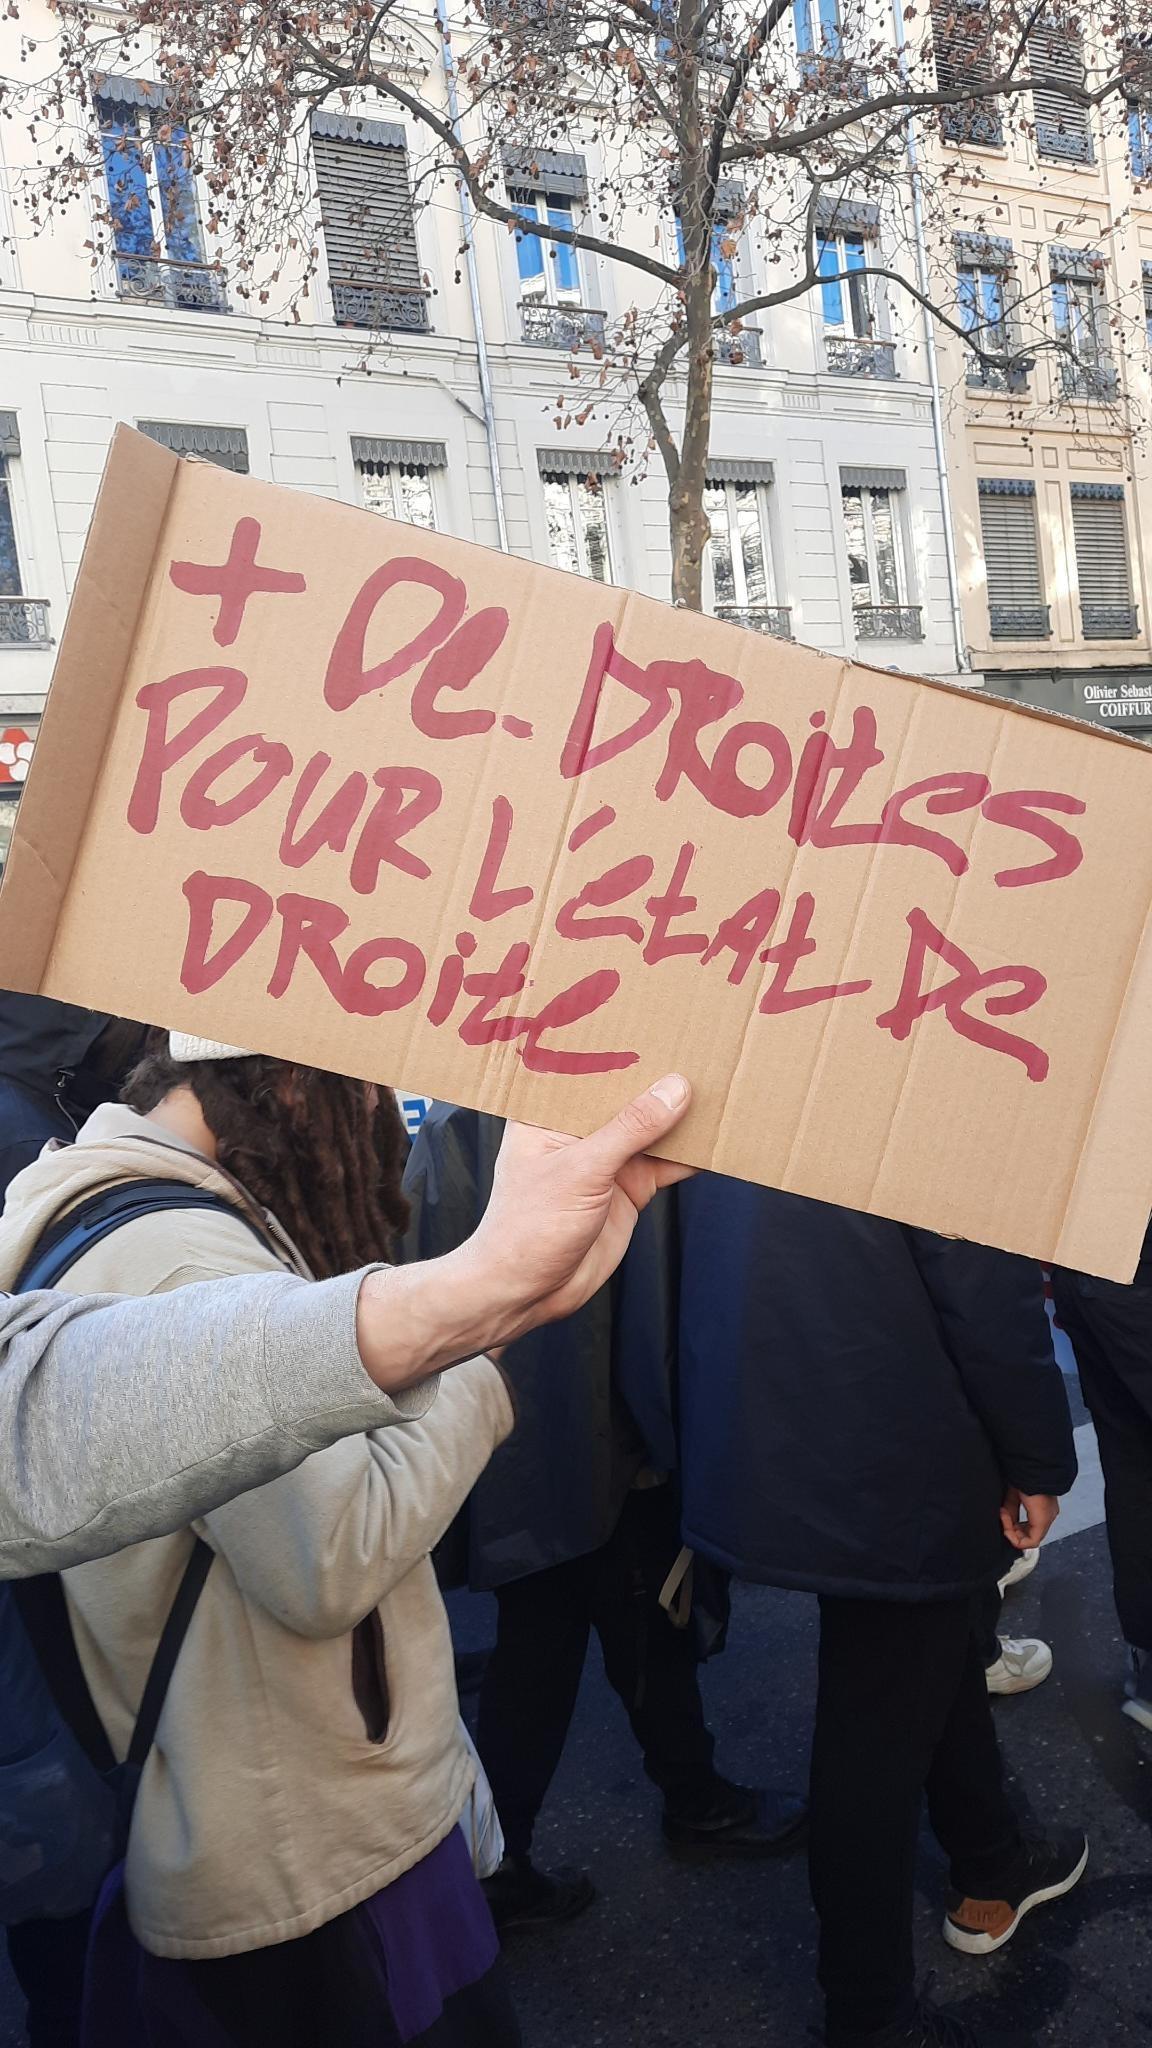 + De DROITES
POUR L'ÉTAT DE
DROITE
Olivier Sebast
COIFFUR